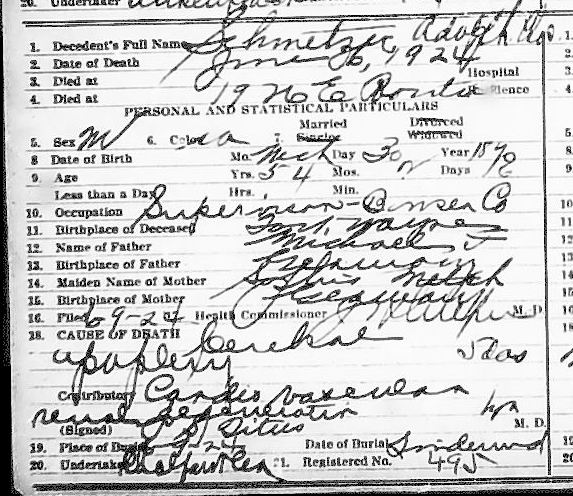 20. Undertaker
1. Decedent's Full Name Schmetzer Adolph Aug.
2. Date of Death June 6, 1924
3. Died at Hospital 3.
4. Died at 1926 E Pontiac Residence 4.
PERSONAL AND STATISTICAL PARTICULARS
Married Divorced
5. Sex M 6. Color w 7. Single Widowed
8 Date of Birth Mo. Mch Day 30 Year 1870 8.
9. Age Yrs. 54 Mos. 2 Days 9
Less than a Day Hrs. Min.
10. Occupation Co 10
11. Birthplace of Deceased Fort Wayne 11
12. Name of Father Michael F 12
13. Birthplace of Father Germany 13
14. Maiden Name of Mother 14
15. Birthplace of Mother Germany 15
16. Filed 6-9-24 17. Health Commissioner M. D. 16
18. CAUSE OF DEATH Cerebral 18
apoplexy
Contributory Cardio vascular
renal degeneration
(Signed) M. D.
19. Place of Burial Date of Burial Lindenwood 19
20. Undertaker 21. Registered No. 495 20